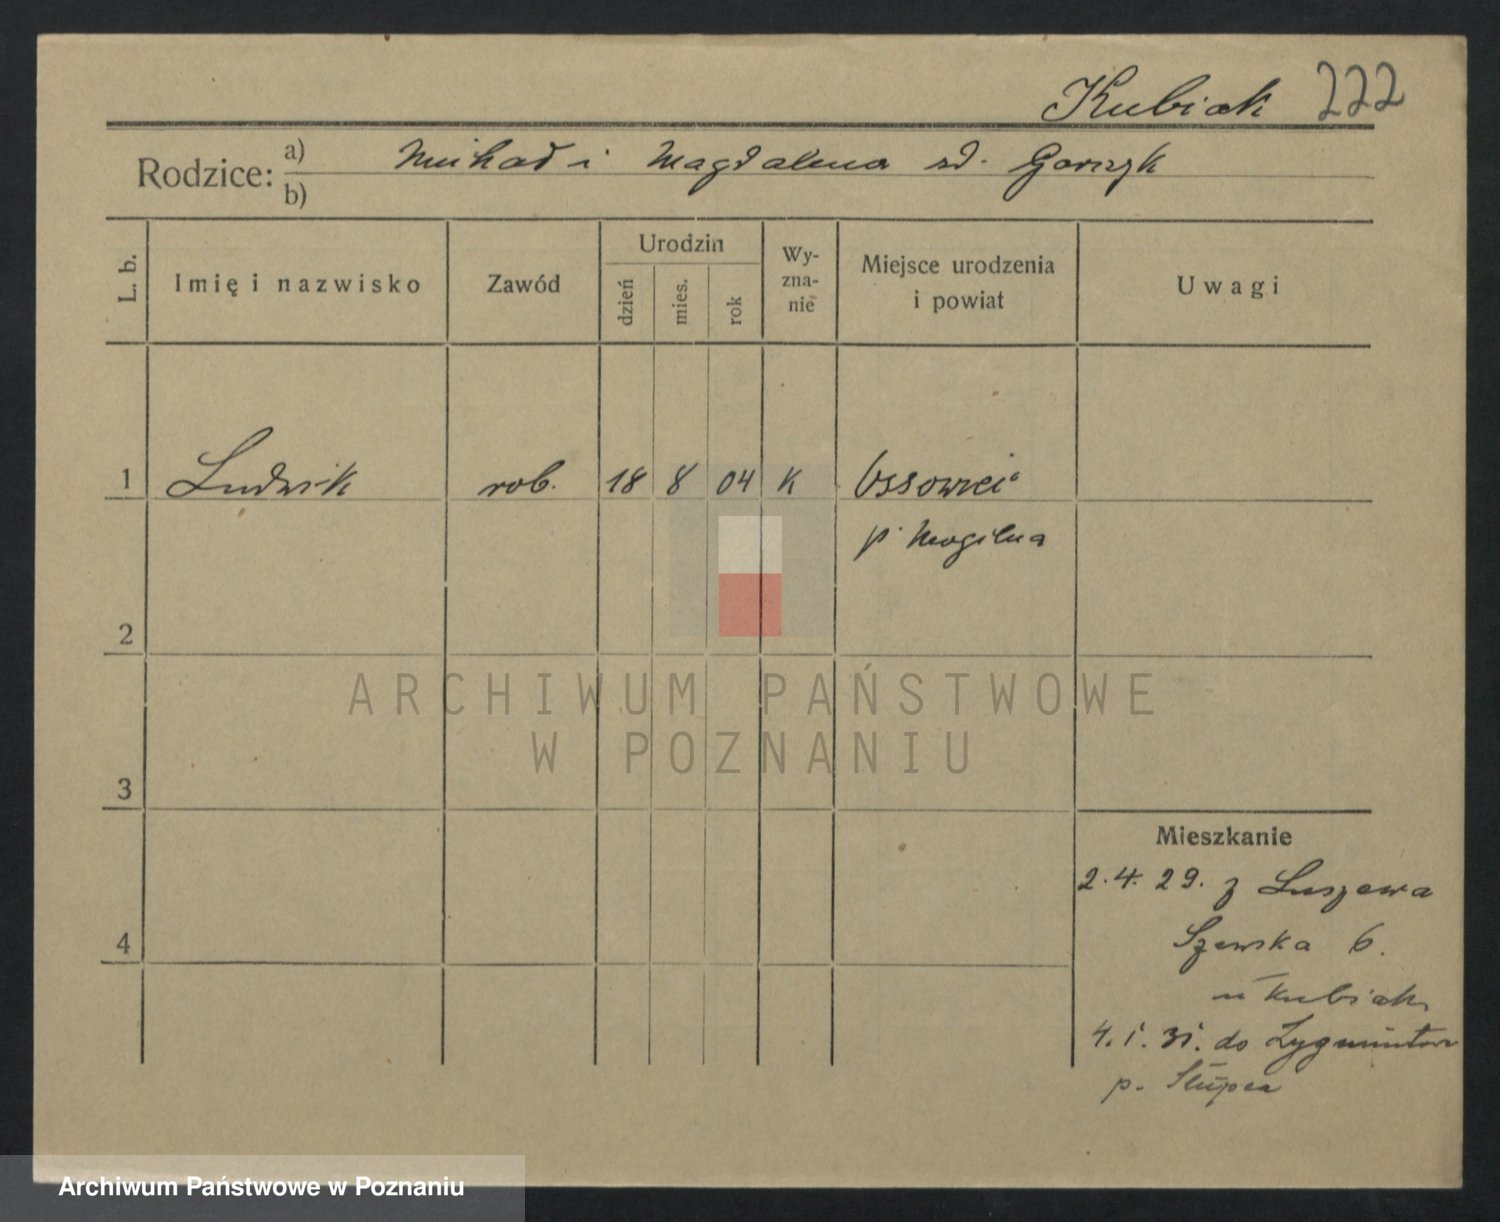 Kubiak 222
Rodzice: a) Michał i Magdalena zd. Gorczyk
b)
L. b. Imię i nazwisko Zawód Urodzin dzień mies. rok Wy-zna-nie Miejsce urodzenia i powiat Uwagi
1 Ludwik rob. 18 8 04 K Ossowiec
p. Mogilna
2
ARCHIWUM PAŃSTWOWE
W POZNANIU
3
Mieszkanie
2.4.29. z
4 Szewska 6.
u Kubiak
4.1.31. do
p. Słupca
Archiwum Państwowe w Poznaniu